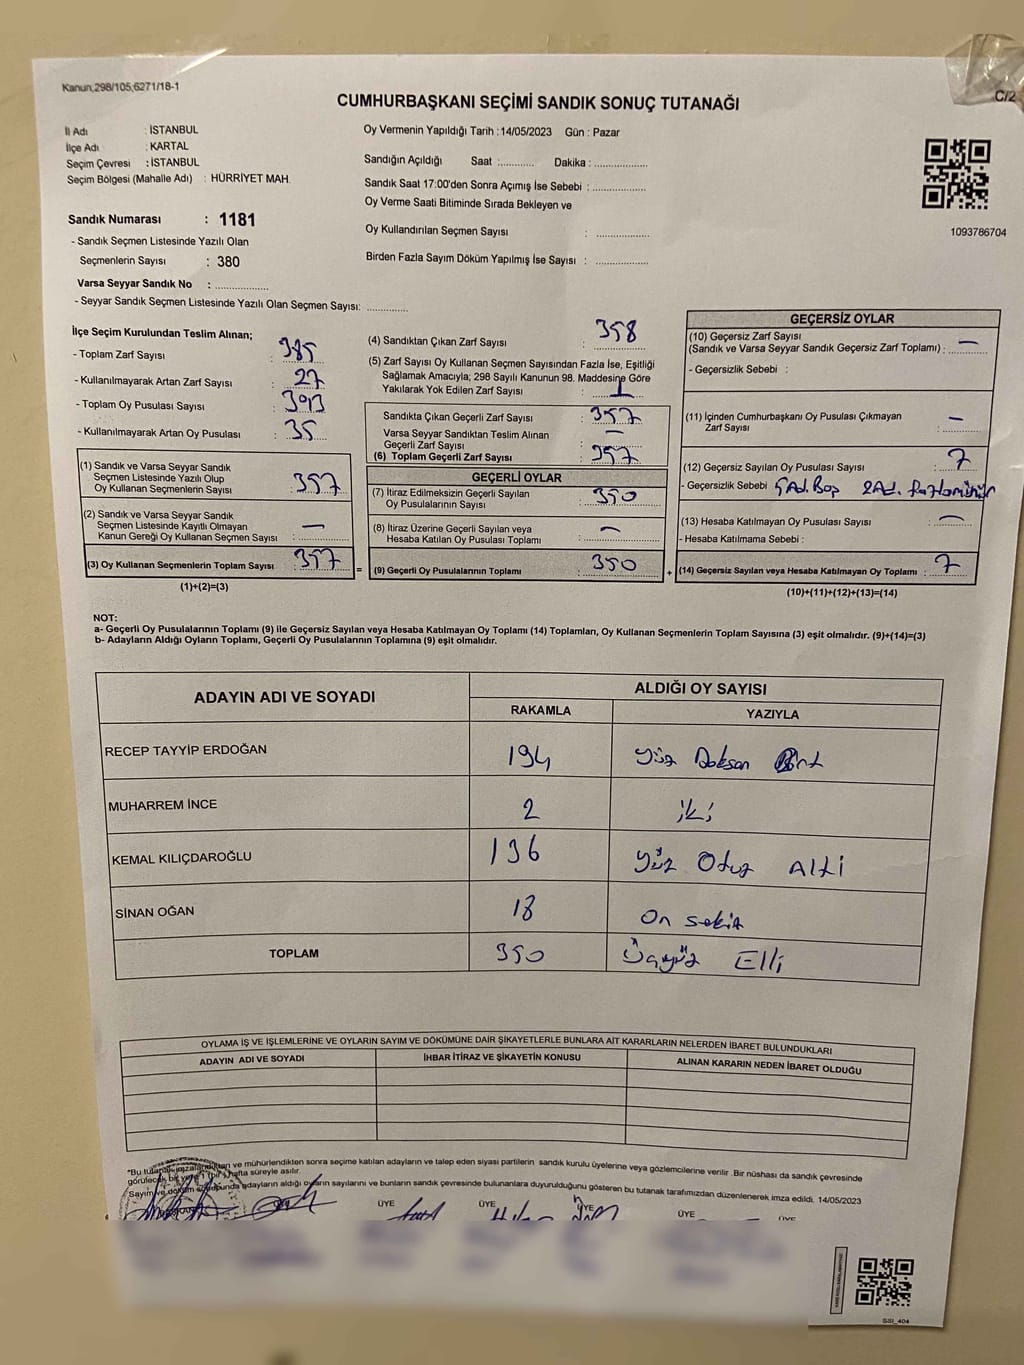 Kanun;298/105,6271/18-1
C/2
CUMHURBAŞKANI SEÇİMİ SANDIK SONUÇ TUTANAĞI
İl Adı : İSTANBUL
İlçe Adı : KARTAL
Seçim Çevresi : İSTANBUL
Seçim Bölgesi (Mahalle Adı) : HÜRRİYET MAH.
Sandık Numarası : 1181
- Sandık Seçmen Listesinde Yazılı Olan
Seçmenlerin Sayısı : 380
Varsa Seyyar Sandık No : ................
- Seyyar Sandık Seçmen Listesinde Yazılı Olan Seçmen Sayısı: ............
Oy Vermenin Yapıldığı Tarih :14/05/2023 Gün : Pazar
Sandığın Açıldığı Saat :........... Dakika : ................
Sandık Saat 17:00'den Sonra Açımış İse Sebebi : ................
Oy Verme Saati Bitiminde Sırada Bekleyen ve
Oy Kullandırılan Seçmen Sayısı : ................
Birden Fazla Sayım Döküm Yapılmış İse Sayısı : ................
1093786704
İlçe Seçim Kurulundan Teslim Alınan;
- Toplam Zarf Sayısı : 385
- Kullanılmayarak Artan Zarf Sayısı : 27
- Toplam Oy Pusulası Sayısı : 393
- Kullanılmayarak Artan Oy Pusulası : 35
(1) Sandık ve Varsa Seyyar Sandık
Seçmen Listesinde Yazılı Olup
Oy Kullanan Seçmenlerin Sayısı : 357
(2) Sandık ve Varsa Seyyar Sandık
Seçmen Listesinde Kayıtlı Olmayan
Kanun Gereği Oy Kullanan Seçmen Sayısı : —
(3) Oy Kullanan Seçmenlerin Toplam Sayısı : 357
(1)+(2)=(3)
=
(4) Sandıktan Çıkan Zarf Sayısı : 358
(5) Zarf Sayısı Oy Kullanan Seçmen Sayısından Fazla İse, Eşitliği
Sağlamak Amacıyla; 298 Sayılı Kanunun 98. Maddesine Göre
Yakılarak Yok Edilen Zarf Sayısı : 1
Sandıkta Çıkan Geçerli Zarf Sayısı : 357
Varsa Seyyar Sandıktan Teslim Alınan
Geçerli Zarf Sayısı : —
(6) Toplam Geçerli Zarf Sayısı : 357
GEÇERLİ OYLAR
(7) İtiraz Edilmeksizin Geçerli Sayılan
Oy Pusulası Sayısı : 350
(8) İtiraz Üzerine Geçerli Sayılan veya
Hesaba Katılan Oy Pusulası Toplamı : —
(9) Geçerli Oy Pusulalarının Toplamı : 350
+
GEÇERSİZ OYLAR
(10) Geçersiz Zarf Sayısı
(Sandık ve Varsa Seyyar Sandık Geçersiz Zarf Toplamı) : —
- Geçersizlik Sebebi :
(11) İçinden Cumhurbaşkanı Oy Pusulası Çıkmayan
Zarf Sayısı : —
(12) Geçersiz Sayılan Oy Pusulası Sayısı : 7
- Geçersizlik Sebebi 5 Ad. Boş 2 Ad.
(13) Hesaba Katılmayan Oy Pusulası Sayısı : —
- Hesaba Katılmama Sebebi :
(14) Geçersiz Sayılan veya Hesaba Katılmayan Oy Toplamı : 7
(10)+(11)+(12)+(13)=(14)
NOT:
a- Geçerli Oy Pusulalarının Toplamı (9) ile Geçersiz Sayılan veya Hesaba Katılmayan Oy Toplamı (14) Toplamları, Oy Kullanan Seçmenlerin Toplam Sayısına (3) eşit olmalıdır. (9)+(14)=(3)
b- Adayların Aldığı Oyların Toplamı, Geçerli Oy Pusulalarının Toplamına (9) eşit olmalıdır.
ADAYIN ADI VE SOYADI
ALDIĞI OY SAYISI
RAKAMLA YAZIYLA
RECEP TAYYİP ERDOĞAN 194 Yüz Doksan Dört
MUHARREM İNCE 2 iki
KEMAL KILIÇDAROĞLU 136 Yüz Otuz Altı
SİNAN OĞAN 18 On sekiz
TOPLAM 350 Üçyüz Elli
OYLAMA İŞ VE İŞLEMLERİNE VE OYLARIN SAYIM VE DÖKÜMÜNE DAİR ŞİKAYETLERLE BUNLARA AİT KARARLARIN NELERDEN İBARET BULUNDUKLARI
ADAYIN ADI VE SOYADI İHBAR İTİRAZ VE ŞİKAYETİN KONUSU ALINAN KARARIN NEDEN İBARET OLDUĞU
"Bu tutanak imzalandıktan ve mühürlendikten sonra seçime katılan adayların ve talep eden siyasi partilerin sandık kurulu üyelerine veya gözlemcilerine verilir .Bir nüshası da sandık çevresinde
görülecek bir yere 1 (bir) hafta süreyle asılır.
Sayım ve döküm sonunda adayların aldığı oyların sayılarını ve bunların sandık çevresinde bulunanlara duyurulduğunu gösteren bu tutanak tarafımızdan düzenlenerek imza edildi. 14/05/2023
ÜYE ÜYE ÜYE ÜYE ÜYE
SSI_404